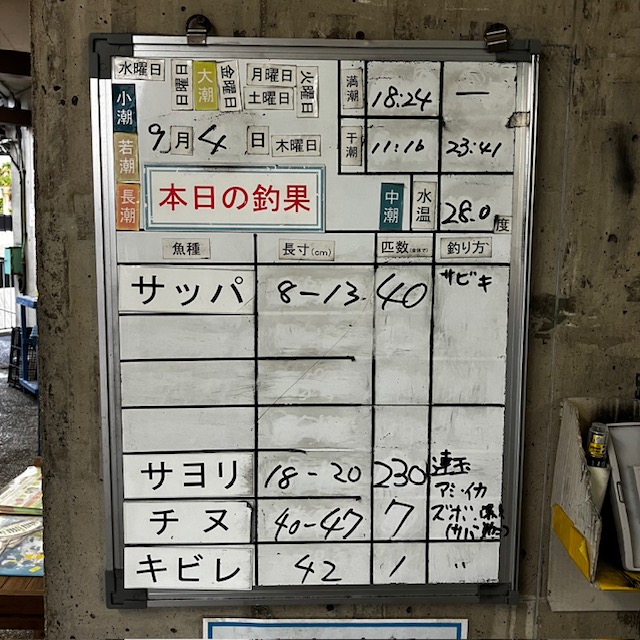 水曜日 日曜日 大潮 金曜日 月曜日 火曜日 土曜日
小潮
若潮
長潮
9月4日 木曜日
満潮 18:24 ー
干潮 11:16 23:41
本日の釣果
中潮 水温 28.0度
魚種 長寸(cm) 匹数 釣り方
サッパ 8-13 40 サビキ
サヨリ 18-20 230 連玉
アミ・イカ
チヌ 40-47 7 ズボ
キビレ 42 1 〃